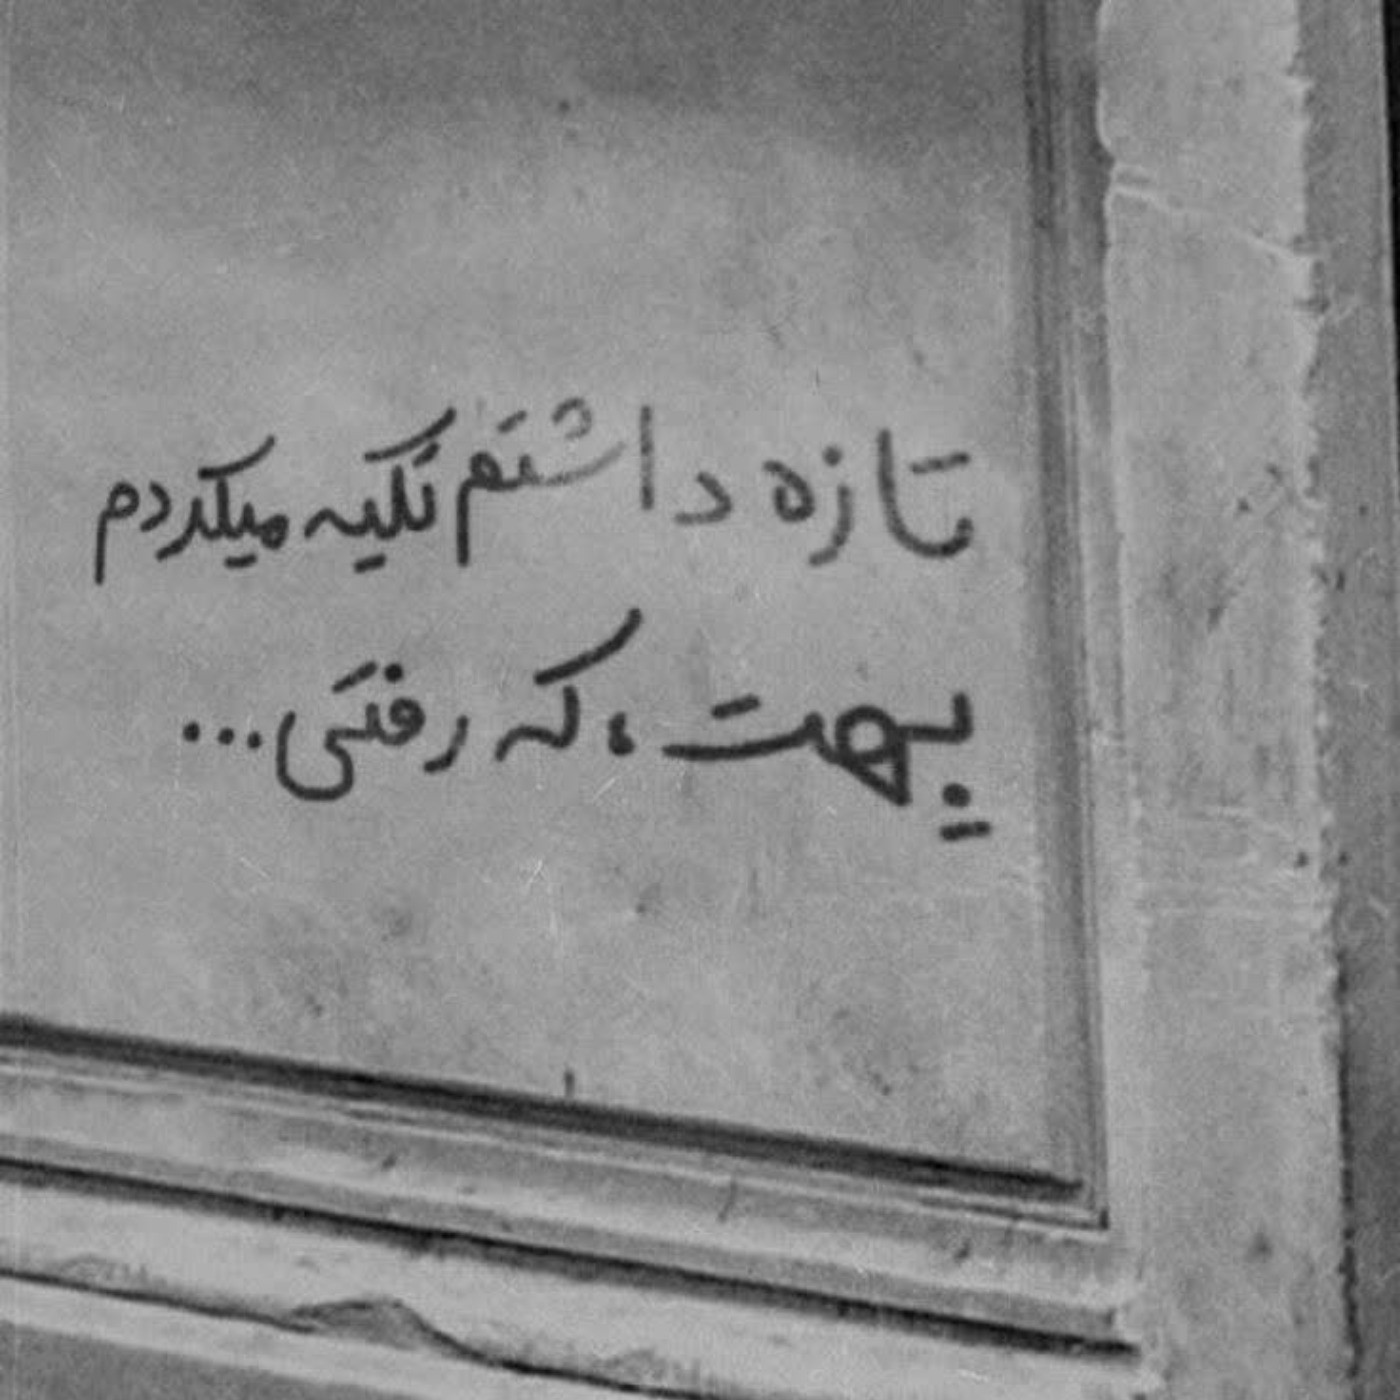 تازه داشتم تکیه میکردم
بهت، که رفتی...